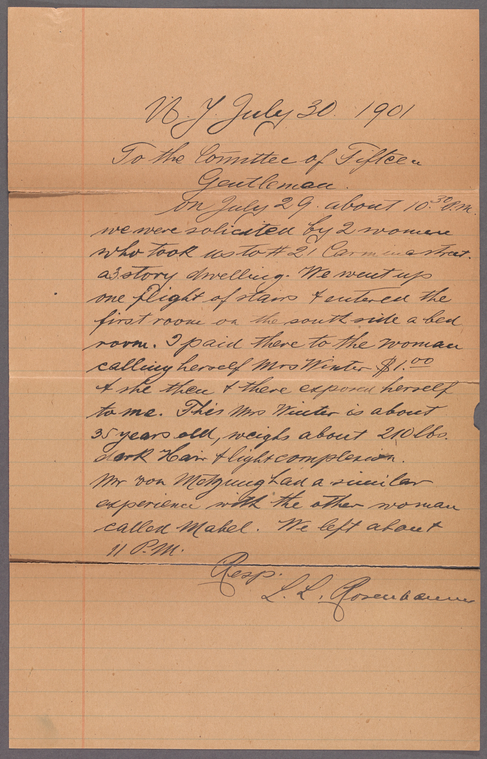 N. Y July 30. 1901
To the Committee of Fifteen
Gentleman.
On July 29. about 10.30 P.M.
we were solicited by 2 women
who took us to # 21 Carmine street.
a 3 story dwelling. We went up
one flight of stairs & entered the
first room on the south side a bed
room. I paid there to the woman
calling herself Mrs Winter $1.00
& she then & there exposed herself
to me. This Mrs Winter is about
35 years old, weighs about 210 lbs.
dark Hair & light complexion.
Mr von had a similar
experience with the other woman
called Mabel. We left about
11 P.M.
Resp.
L. L. Rosenbaum